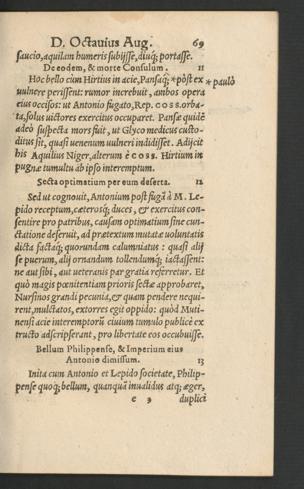 D. Octauius Aug. 69
saucio, aquilam humeris subijsse, diuq; portasse.
De eodem, & morte Consulum. 11
Hoc bello cùm Hirtius in acie, Pansaq; *pòst ex * paulò
uulnere perissent: rumor increbuit, ambos opera
eius occisos: ut Antonio fugato, Rep. coss. orba-
ta, solus uictores exercitus occuparet. Pansæ quidē
adeò suspecta mors fuit, ut Glyco medicus custo-
ditus sit, quasi uenenum uulneri indidisset. Adijcit
his Aquilius Niger, alterum è coss. Hirtium in
pugnæ tumultu ab ipso interemptum.
Secta optimatium per eum deserta. 12
Sed ut cognouit, Antonium post fugā à M. Le-
pido receptum, cæterosq; duces, & exercitus con-
sentire pro patribus, causam optimatium sine cun-
ctatione deseruit, ad prætextum mutatæ uoluntatis
dicta factaq; quorundam calumniatus: quasi alij
se puerum, alij ornandum tollendumq; iactassent:
ne aut sibi, aut ueteranis par gratia referretur. Et
quò magis pœnitentiam prioris sectæ approbaret,
Nursinos grandi pecunia, & quam pendere nequi-
rent, mulctatos, extorres egit oppido: quòd Muti-
nensi acie interemptorū ciuium tumulo publicè ex
tructo adscripserant, pro libertate eos occubuisse.
Bellum Philippense, & Imperium eius
Antonio dimissum. 13
Inita cum Antonio et Lepido societate, Philip-
pense quoq; bellum, quanquā inualidus atq; æger,
e 3 duplici